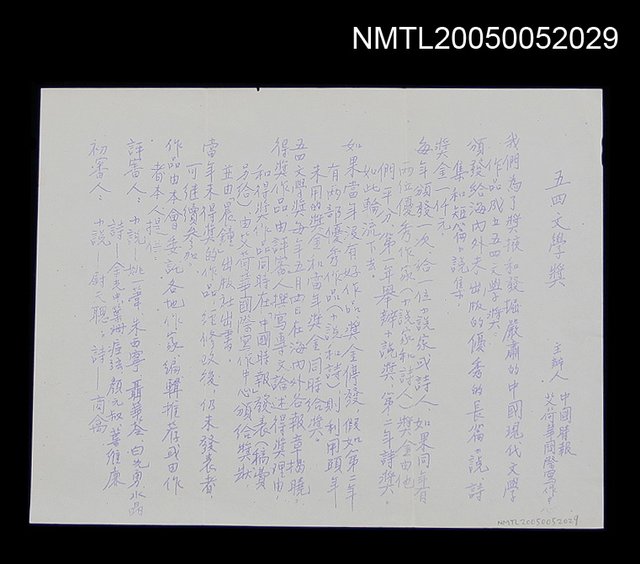 NMTL20050052029
五四文學獎
主辦人 中國時報
艾荷華國際寫作中心
我們為了獎掖和發掘嚴肅的中國現代文學
作品成立五四文學獎。
頒發給海內外未出版的優秀的長篇小說、詩
集和短篇小說集。
獎金一仟元。
每年頒發一次，給一位小說家或詩人，如果同時有
兩位優秀作家（小說家和詩人），獎金由他
們平分。第一年舉辦小說獎，第二年詩獎，
如此輪流下去。
如果當年沒有好作品，獎金停發，假如第二年
有兩部優秀作品（小說和詩）則利用頭年
未用的獎金和當年獎金同時給獎。
五四文學獎每年五月四日在海內外各報章揭曉，
得獎作品由評審人撰寫專文論述得獎理由，
和得獎作品同時在「中國時報」發表（稿費
另給）由艾荷華國際寫作中心頒給獎狀
並由晨鐘出版社出書。
當年未得獎的作品，經修改後，仍未發表者，
可繼續參加。
作品由本會委託各地作家、編輯推荐或由作
者本人提供。
評審人：小說—姚一葦、朱西寧、聶華苓、白先勇、水晶
詩—余光中、葉珊、瘂弦、顏元叔、葉維廉
初審人：小說—尉天驄，詩—商禽
NMTL20050052029